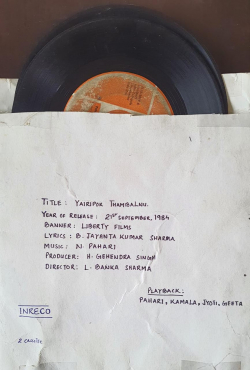 TITLE: YAIRIPOK THAMBALNU.
YEAR OF RELEASE: 21ST SEPTEMBER, 1984
BANNER: LIBERTY FILMS
LYRICS: B. JAYANTA KUMAR SHARMA
MUSIC: N. PAHARI
PRODUCER: H. GEHENDRA SINGH
DIRECTOR: L. BANKA SHARMA
PLAYBACK:
PAHARI, KAMALA, JYOTI, GEETA
INRECO